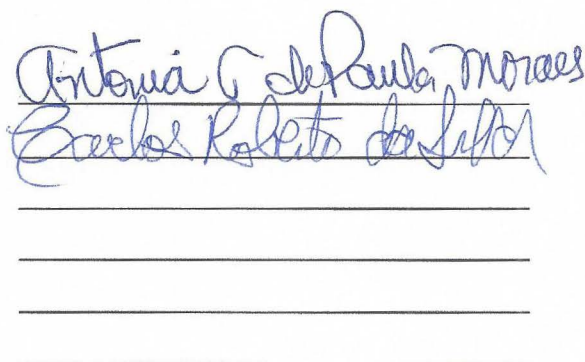 Antonia C de Paula Moraes
Carlos Roberto da Silva